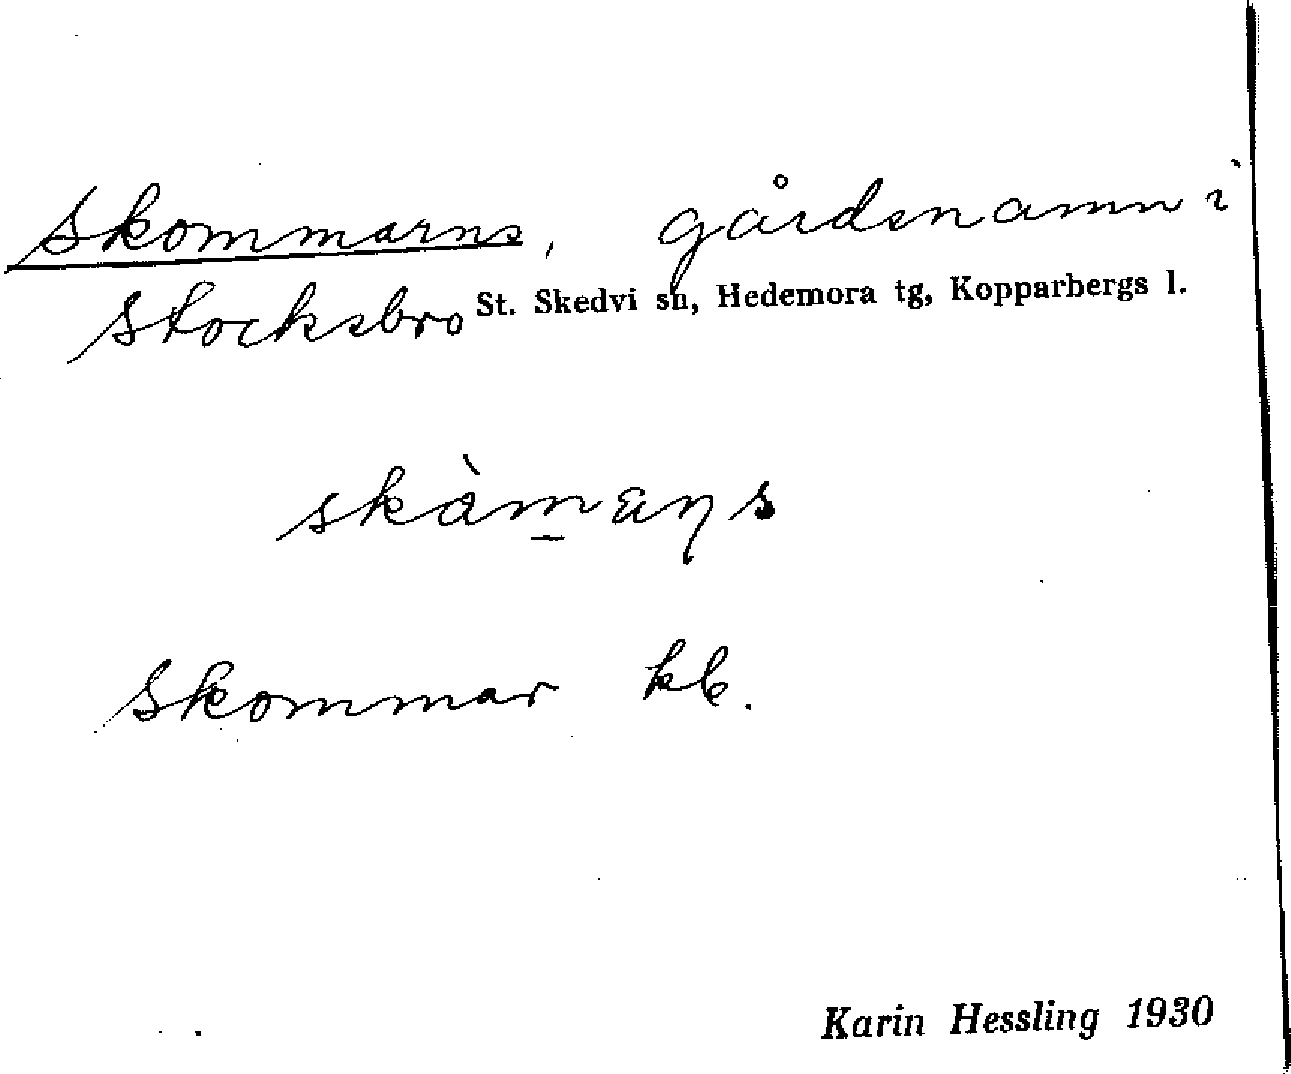 Skommarns, gårdsnamn i
Stocksbro St. Skedvi sn, Hedemora tg, Kopparbergs l.
Skommar kb.
Karin Hessling 1930